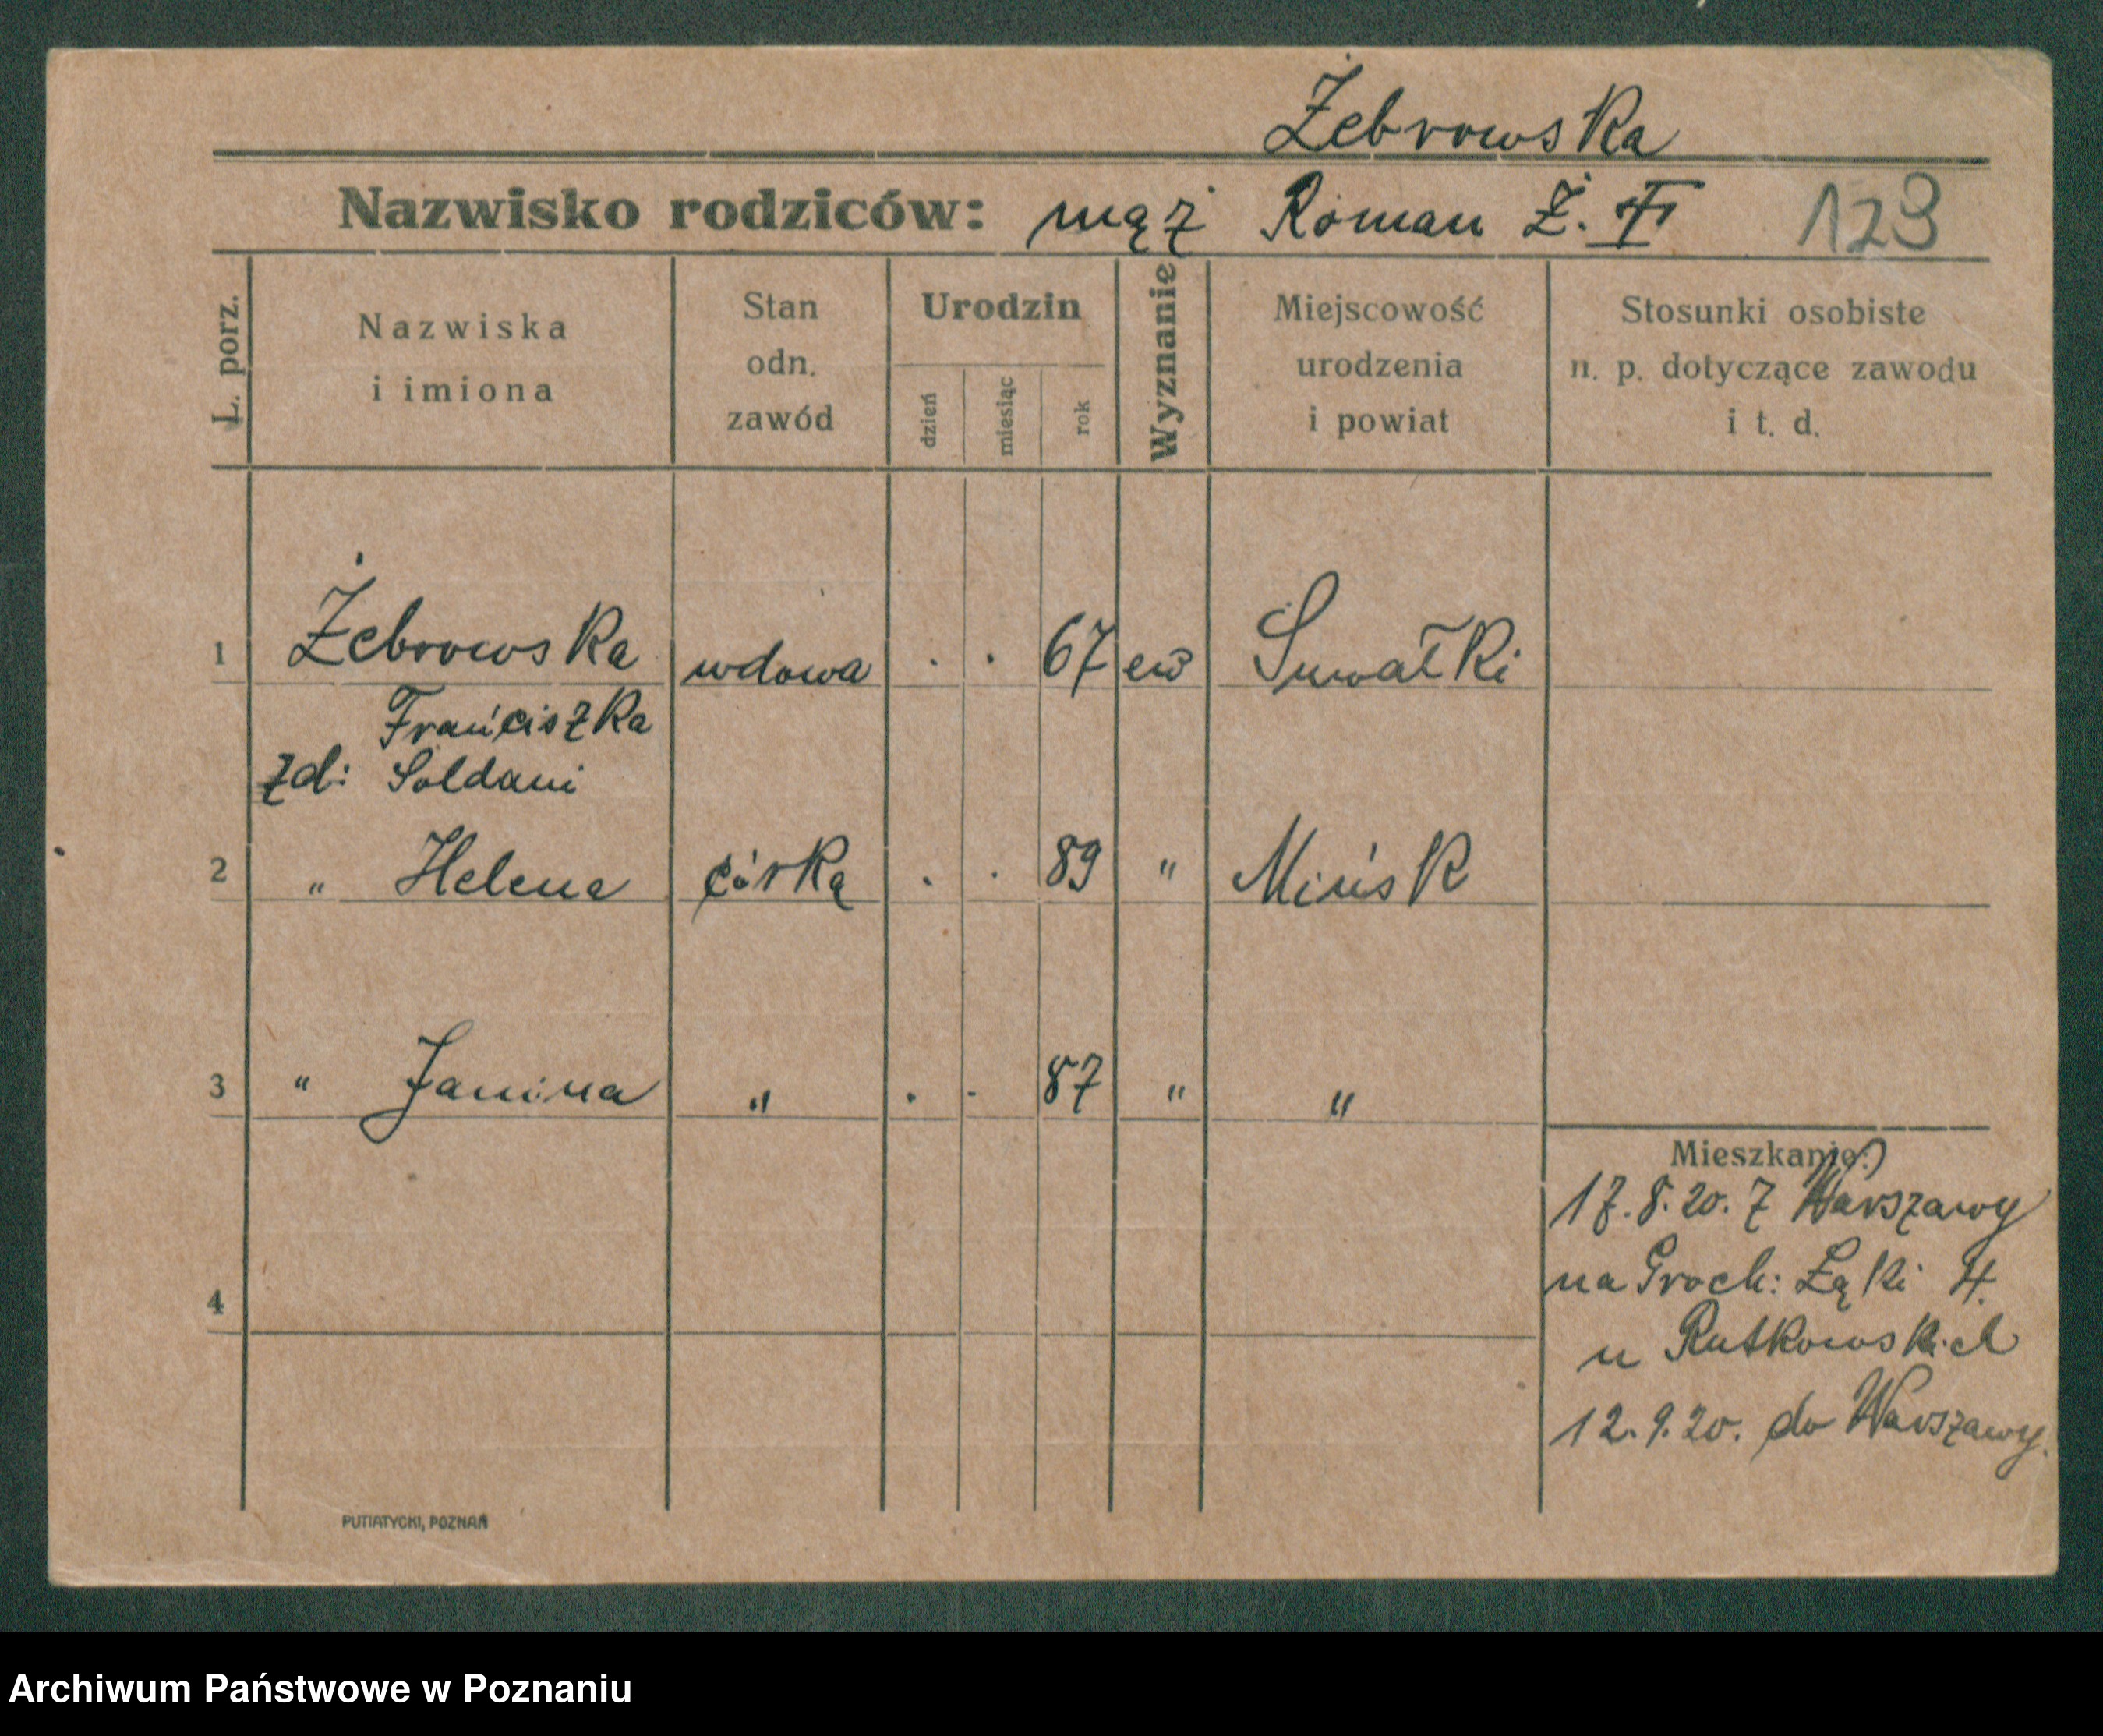 Żebrowska
Nazwisko rodziców: mąż Roman Ż. 123
L. porz.
Nazwiska i imiona
Stan odn. zawód
Urodzin
dzień
miesiąc
rok
Wyznanie
Miejscowość urodzenia i powiat
Stosunki osobiste n. p. dotyczące zawodu i t. d.
1 Żebrowska wdowa . . 67 ew Suwałki
Franciszka
zd: Soldani
2 " Helena córka . . 89 " Mińsk
3 " Janina " . . 87 " "
4
Mieszkanie:
17.8.20. z Warszawy
na Groch: Łąki 4.
u Rutkowskich
12.9.20. do Warszawy.
PUTIATYCKI, POZNAŃ
Archiwum Państwowe w Poznaniu